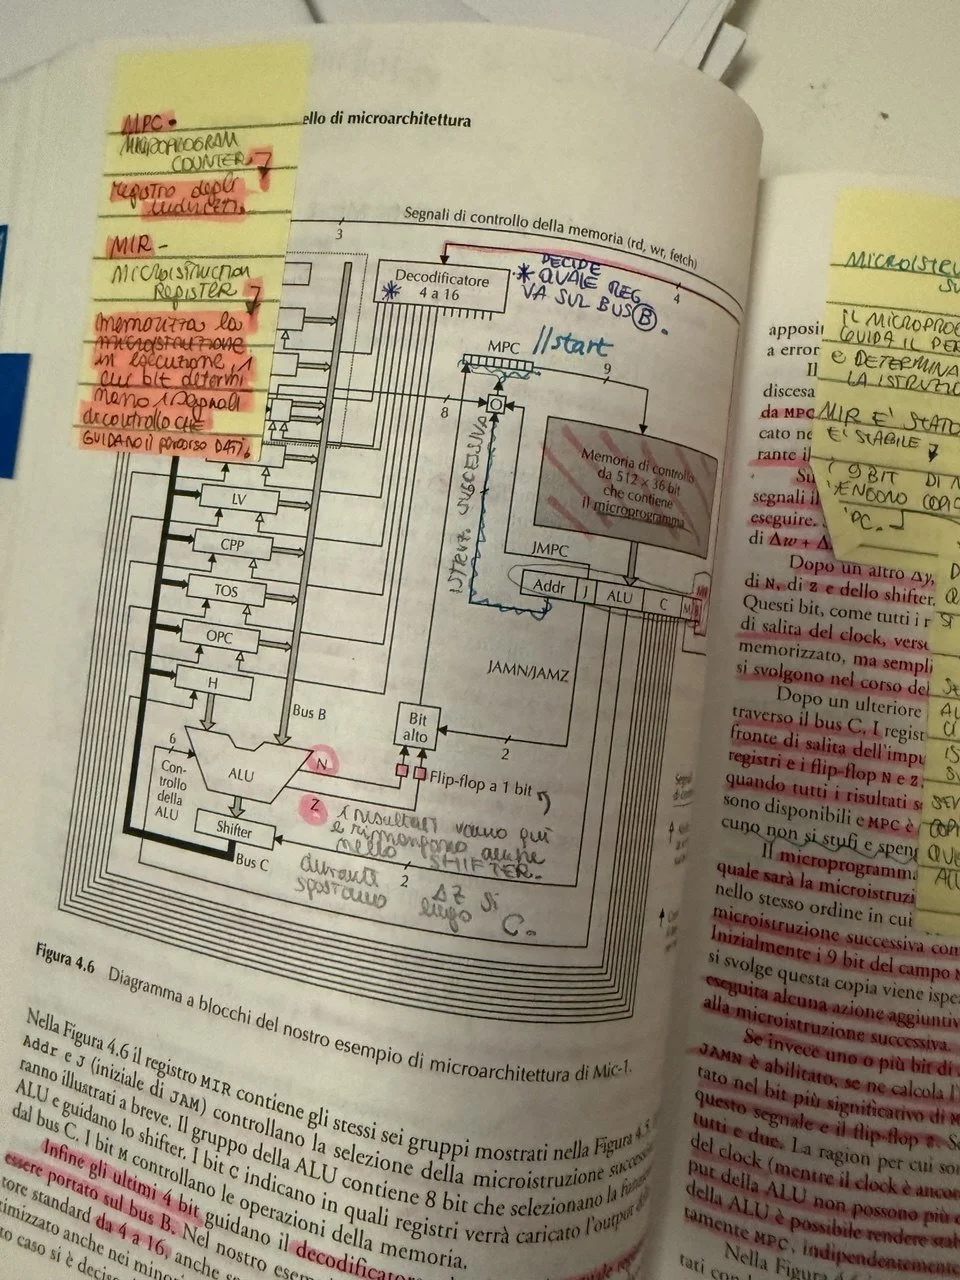 ello di microarchitettura
MPC -
MICROPROGRAM
COUNTER
registro degli
indirizzi.
MIR -
MICROISTRUCTION
REGISTER
memorizza la
microistruzione
in esecuzione, i
cui bit determi
nano i segnali
di controllo CHE
GUIDANO il percorso DATI.
Segnali di controllo della memoria (rd, wr, fetch)
3
4
Decodificatore
4 a 16
* DECIDE
QUALE REG
VA SUL BUS B.
MPC
//start
9
8
O
ISTRUZ. SUCCESSIVA
Memoria di controllo
da 512 × 36-bit
che contiene
il microprogramma
JMPC
Addr
J
ALU
C
M
B
LV
CPP
TOS
OPC
H
JAMN/JAMZ
Bus B
Bit
alto
2
6
Con-
trollo
della
ALU
ALU
N
Z
Flip-flop a 1 bit
Shifter
Bus C
2
i risultati vanno qui
e rimangono anche
nello SHIFTER.
durante ΔZ si
spostano lungo C.
Figura 4.6 Diagramma a blocchi del nostro esempio di microarchitettura di Mic-1.
Nella Figura 4.6 il registro MIR contiene gli stessi sei gruppi mostrati nella Figura 4.5. I
Addr e J (iniziale di JAM) controllano la selezione della microistruzione
ranno illustrati a breve. Il gruppo della ALU contiene 8 bit che selezionano la
ALU e guidano lo shifter. I bit C indicano in quali registri verrà caricato l'output
dal bus C. I bit M controllano le operazioni della memoria.
Infine gli ultimi 4 bit guidano il
essere portato sul bus B. Nel nostro
tore standard da 4 a 16, anche
to caso si è
MICROISTRU
IL MICROPRO
GUIDA IL PER
e DETERMINA
LA ISTRUZIO
MIR E' STATO
E' STABILE
9 BIT DI N
VENGONO COPIA
apposit
a error
Il
discesa
da MPC
cato ne
rante il
segnali il
eseguire.
di Δw + Δ
Dopo un altro Δy,
di N, di Z e dello shifter.
Questi bit, come tutti i r
di salita del clock, verso
memorizzato, ma sempli
si svolgono nel corso del
Dopo un ulteriore
traverso il bus C. I regist
fronte di salita dell'impu
registri e i flip-flop N e Z,
quando tutti i risultati s
sono disponibili e MPC è
cuno non si stufi e spen
Il microprogramma
quale sarà la microistruzi
nello stesso ordine in cui
microistruzione successiva con
Inizialmente i 9 bit del campo
si svolge questa copia viene ispe
eseguita alcuna azione aggiuntiv
alla microistruzione successiva.
Se invece uno o più bit di
JAMN è abilitato, se ne calcola l'
tato nel bit più significativo di M
questo segnale e il flip-flop Z. Se
tutti e due. La ragion per cui so
del clock (mentre il clock è ancor
put della ALU non possono più
della ALU è possibile rendere stab
tamente MPC, indipendentemente
Nella Figu